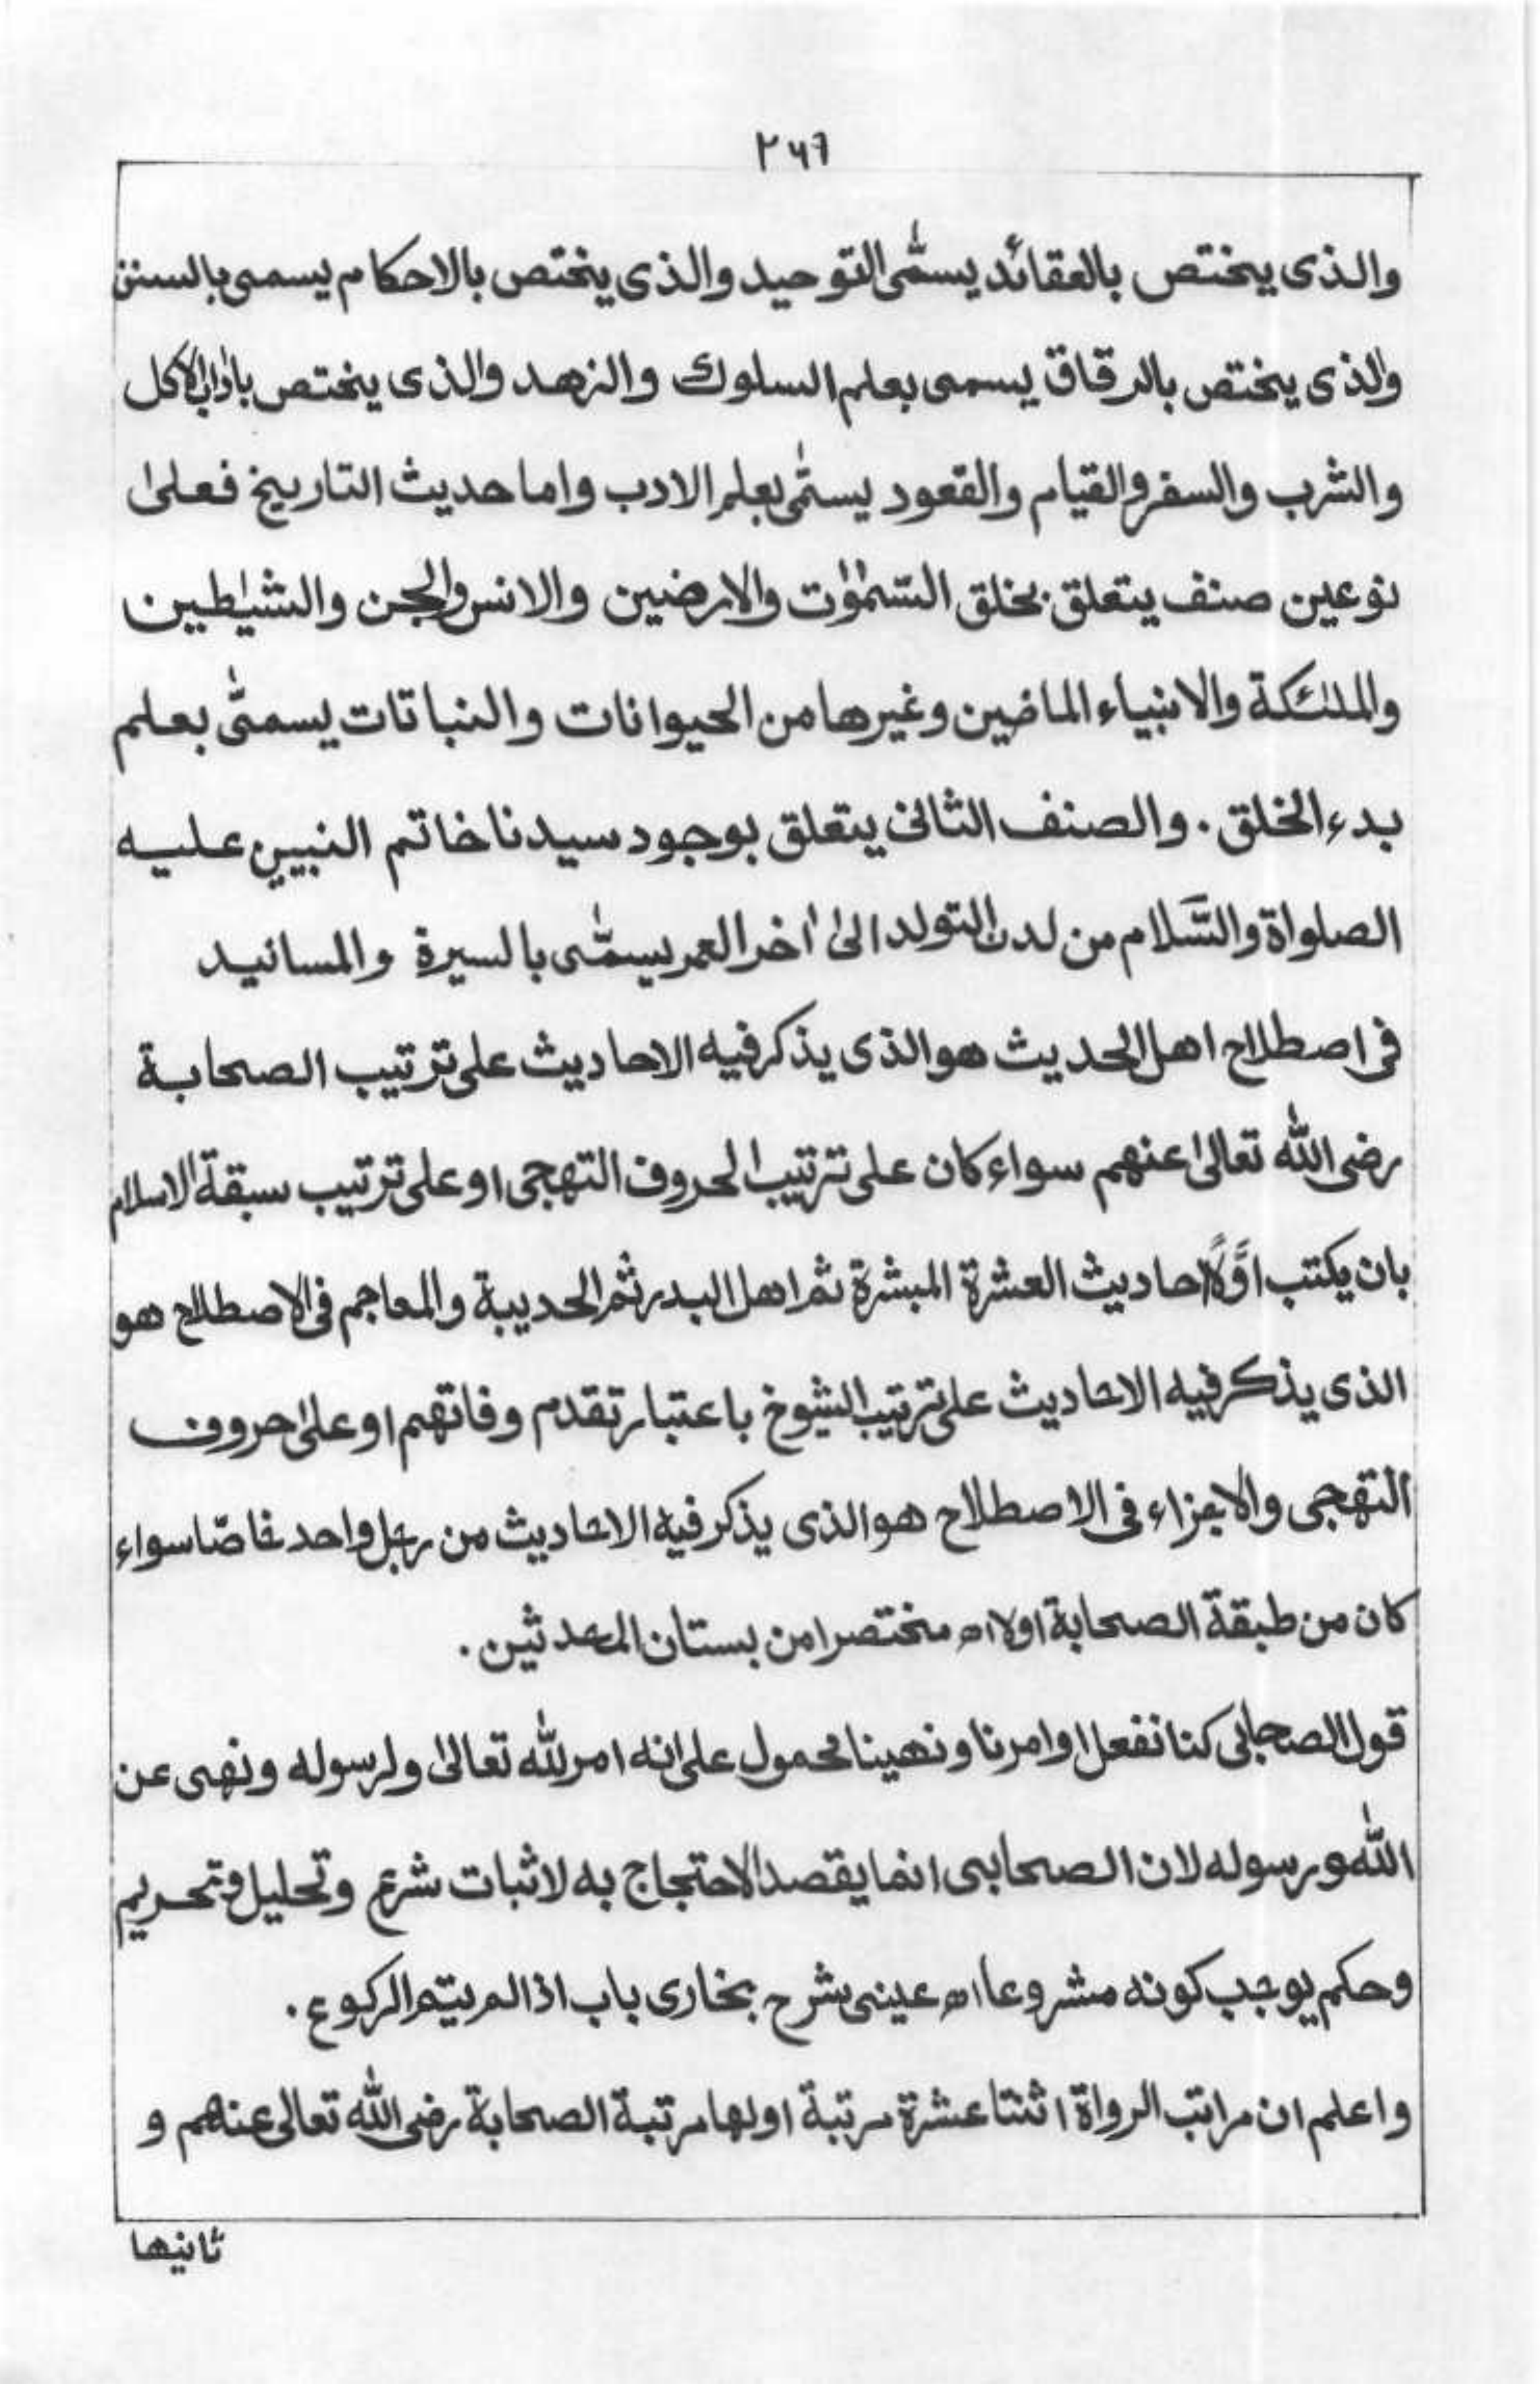 ۲۶۶
والذى يختص بالعقائد يسمّى التوحيد والذى يختص بالاحكام يسمى بالسنن
والذى يختص بالرقاق يسمى بعلم السلوك والزهد والذى يختص باداب الاكل
والشرب والسفر والقيام والقعود يسمّى بعلم الادب واما حديث التاريخ فعلىٰ
نوعين صنف يتعلق بخلق السّمٰوٰت والارضين والانس والجن والشيٰطين
والملٰئكة والانبياء الماضين وغيرها من الحيوانات والنباتات يسمىّ بعلم
بدء الخلق . والصنف الثانى يتعلق بوجود سيدنا خاتم النبيين عليه
الصلواة والسَّلام من لدن التولد الىٰ اٰخر العمر يسمّٰى بالسيرة والمسانيد
فى اصطلاح اهل الحديث هو الذى يذكر فيه الاحاديث على ترتيب الصحابة
رضى الله تعالىٰ عنهم سواء كان على ترتيب الحروف التهجى او على ترتيب سبقة الاسلام
بان يكتب اوّلًا احاديث العشرة المبشرة ثم اهل البدر ثم الحديبة والمعاجم فى الاصطلاح هو
الذى يذكر فيه الاحاديث على ترتيب الشيوخ باعتبار تقدم وفاتهم او علىٰ حروف
التهجى والاجزاء فى الاصطلاح هو الذى يذكر فيه الاحاديث من رجل واحد خاصّا سواء
كان من طبقة الصحابة اولا اه مختصرا من بستان المحدثين .
قول الصحابى كنا نفعل او امرنا و نهينا محمول على انه امر لله تعالىٰ ولرسوله ونهى عن
الله ورسوله لان الصحابى انما يقصد الاحتجاج به لاثبات شرع وتحليل وتحريم
وحكم يوجب كونه مشروعا اه عينى شرح بخارى باب اذا لم يتم الركوع .
واعلم ان مراتب الرواة اثنتا عشرة مرتبة اولها مرتبة الصحابة رضى الله تعالى عنهم و
ثانيها